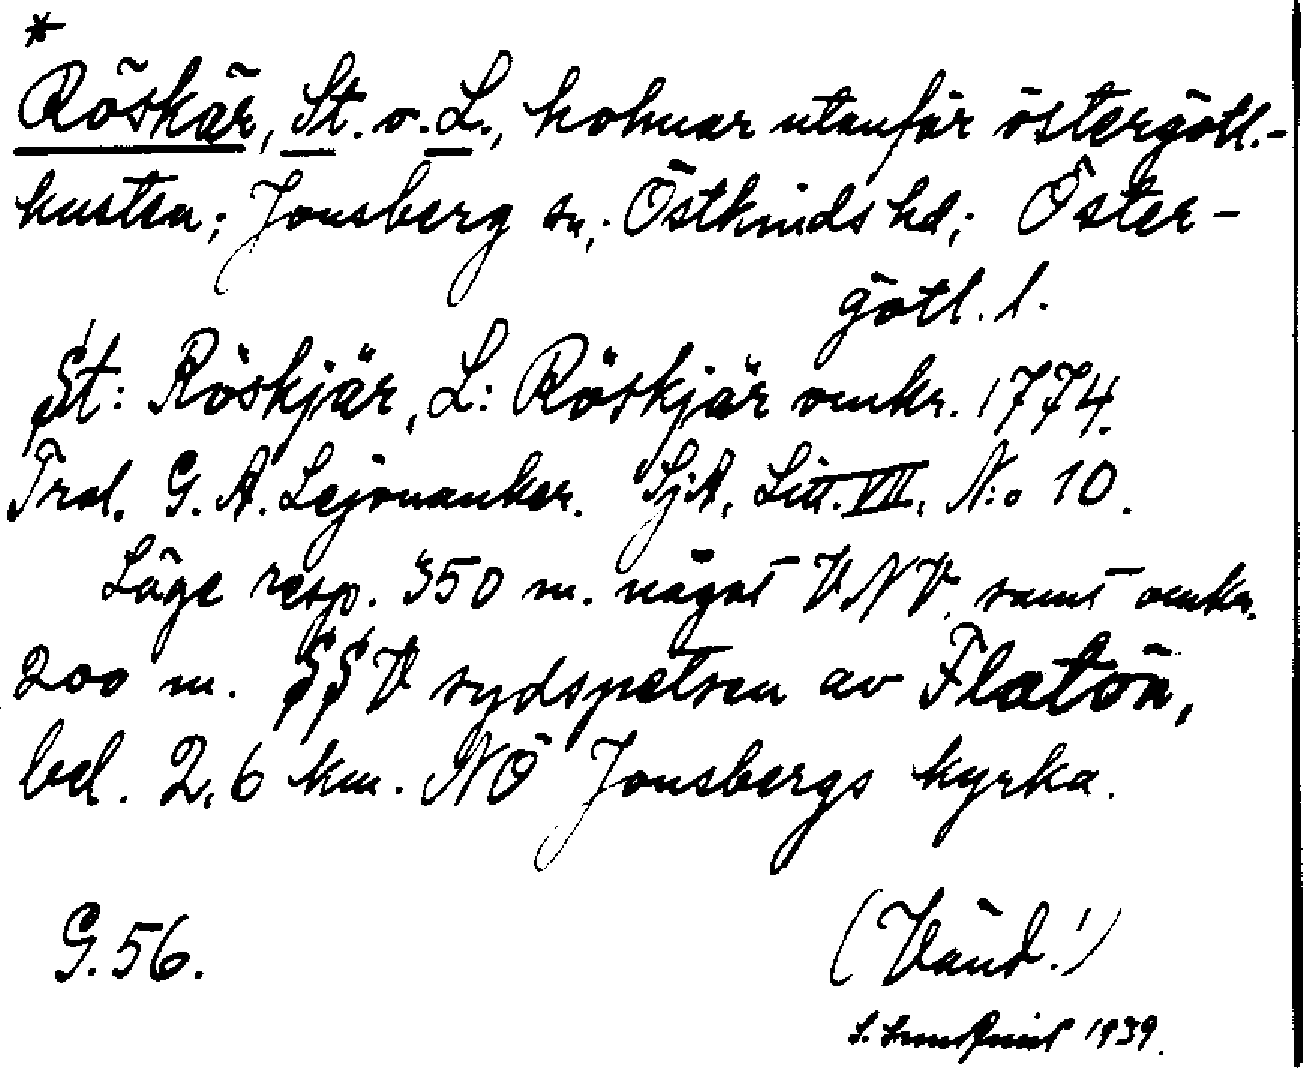 *
Röskär, St. o. L., holmar utanför östergötl.-
kusten; Jonsberg sn; Östkinds hd; Öster-
götl. l.
St: Röskjär, L: Röskjär omkr. 1774.
Trol. G. A. Lejonanker. SjA, Litt. VII, N:o 10.
Läge resp. 350 m. något VNV. samt omkr.
200 m. SSV sydspetsen av Flatön,
bel. 2,6 km. NÖ Jonsbergs kyrka.
G. 56.
(Vänd!)
S. 1939.